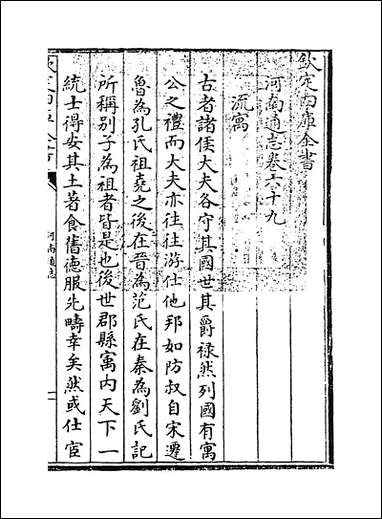 欽定四庫全書
河南通志卷六十九
流寓
古者諸侯大夫各守其國世其爵禄然列國有寓
公之禮而大夫亦往往游仕他邦如防叔自宋遷
魯為孔氏祖堯之後在晉為范氏在秦為劉氏記
所稱别子為祖者皆是也後世郡縣寓内天下一
統士得安其土著食舊德服先疇幸矣然或仕宦
欽定四庫全書
河南通志
一